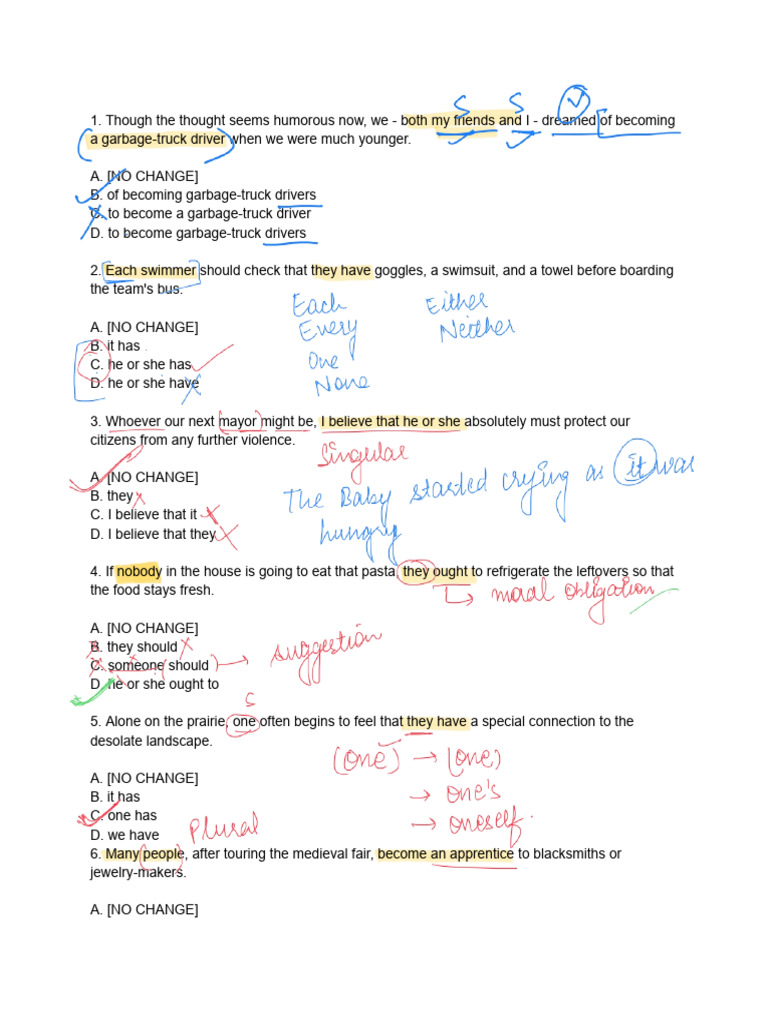 S S
1. Though the thought seems humorous now, we - both my friends and I - dreamed of becoming
a garbage-truck driver when we were much younger.
A. [NO CHANGE]
B. of becoming garbage-truck drivers
C. to become a garbage-truck driver
D. to become garbage-truck drivers
2. Each swimmer should check that they have goggles, a swimsuit, and a towel before boarding
the team's bus.
Each Either
A. [NO CHANGE] Every Neither
B. it has
C. he or she has One
D. he or she have None
3. Whoever our next mayor might be, I believe that he or she absolutely must protect our
citizens from any further violence.
Singular
A. [NO CHANGE]
B. they
The Baby started crying as it was
C. I believe that it
D. I believe that they
hungry
4. If nobody in the house is going to eat that pasta, they ought to refrigerate the leftovers so that
the food stays fresh.
moral obligation
A. [NO CHANGE]
B. they should
C. someone should
suggestion
D. he or she ought to
S
5. Alone on the prairie, one often begins to feel that they have a special connection to the
desolate landscape.
(one) → (one)
A. [NO CHANGE]
B. it has
→ one's
C. one has
→ oneself.
D. we have
Plural
6. Many people, after touring the medieval fair, become an apprentice to blacksmiths or
jewelry-makers.
A. [NO CHANGE]